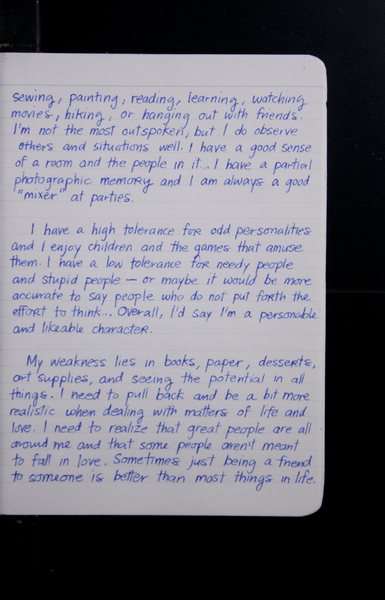 sewing, painting, reading, learning, watching
movies, hiking, or hanging out with friends.
I'm not the most outspoken, but I do observe
others and situations well. I have a good sense
of a room and the people in it... I have a partial
photographic memory and I am always a good
"mixer" at parties.
I have a high tolerance for odd personalities
and I enjoy children and the games that amuse
them. I have a low tolerance for needy people
and stupid people — or maybe it would be more
accurate to say people who do not put forth the
effort to think... Overall, I'd say I'm a personable
and likeable character.
My weakness lies in books, paper, desserts,
art supplies, and seeing the potential in all
things. I need to pull back and be a bit more
realistic when dealing with matters of life and
love. I need to realize that great people are all
around me and that some people aren't meant
to fall in love. Sometimes just being a friend
to someone is better than most things in life.